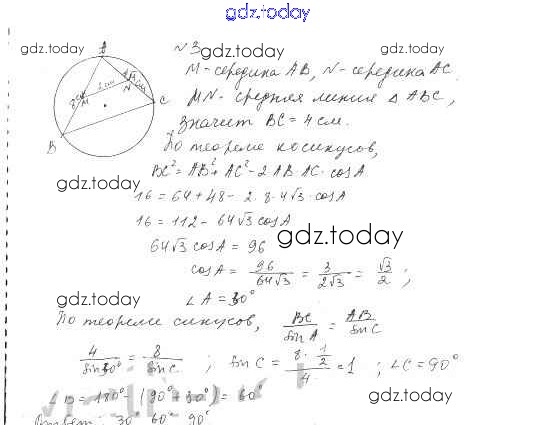 gdz.today
N 3
gdz.today
gdz.today
gdz.today
A
M - середина AB, N - середина AC.
8 см
2 см
M
N
C
B
MN - средняя линия △ ABC,
значит BC = 4 см.
По теореме косинусов,
BC² = AB² + AC² - 2 AB · AC · cosA
gdz.today
16 = 64 + 48 - 2 · 8 · 4√3 · cosA
16 = 112 - 64√3 cosA
gdz.today
64√3 cosA = 96
cosA = 96/64√3 = 3/2√3 = √3/2 ;
gdz.today
gdz.today
∠A = 30°
По теореме синусов, BC/sinA = AB/sinC
4/sin30° = 8/sinC ; sinC = 8 · 1/2 / 4 = 1 ; ∠C = 90°
gdz.today
gdz.today
∠B = 180° - (90° + 30°) = 60°
Ответ: 30° 60° 90°